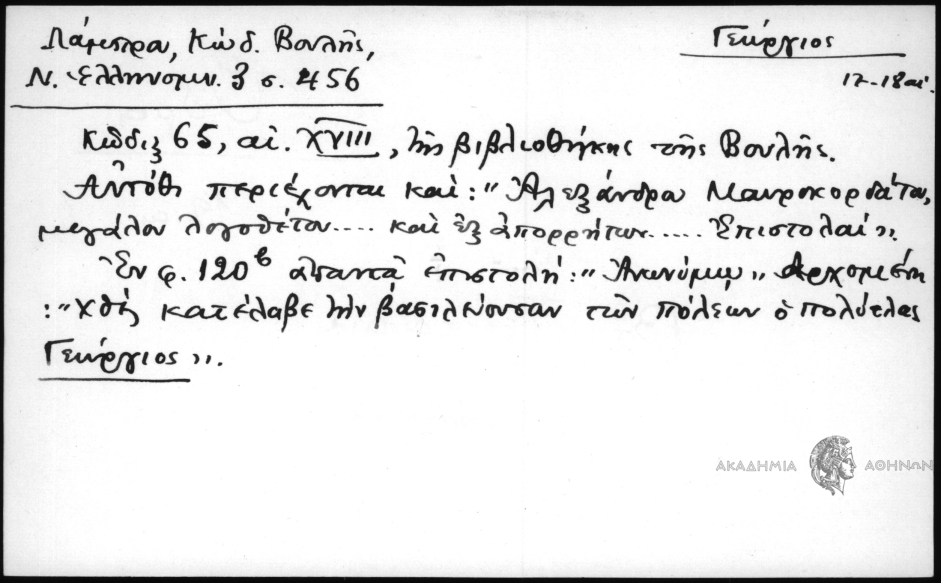 Λάμπρου, Κώδ. Βουλῆς,
Ν. Ἑλληνομν. 3 σ. 456
Γεώργιος
17-18 αἰ.
Κῶδιξ 65, αἰ. XVIII, τῆς βιβλιοθήκης τῆς Βουλῆς.
Αὐτόθι περιέχονται καὶ: "Ἀλεξάνδρου Μαυροκορδάτου,
μεγάλου λογοθέτου.... καὶ ἐξ ἀπορρήτων..... Ἐπιστολαί".
Ἐν φ. 120β ἀπαντᾷ ἐπιστολή: "Ἀνωνύμῳ" ἀρχομένη
: "Χθὲς κατέλαβε τὴν βασιλεύουσαν τῶν πόλεων ὁ πολύτλας
Γεώργιος".
ΑΚΑΔΗΜΙΑ ΑΘΗΝΩΝ